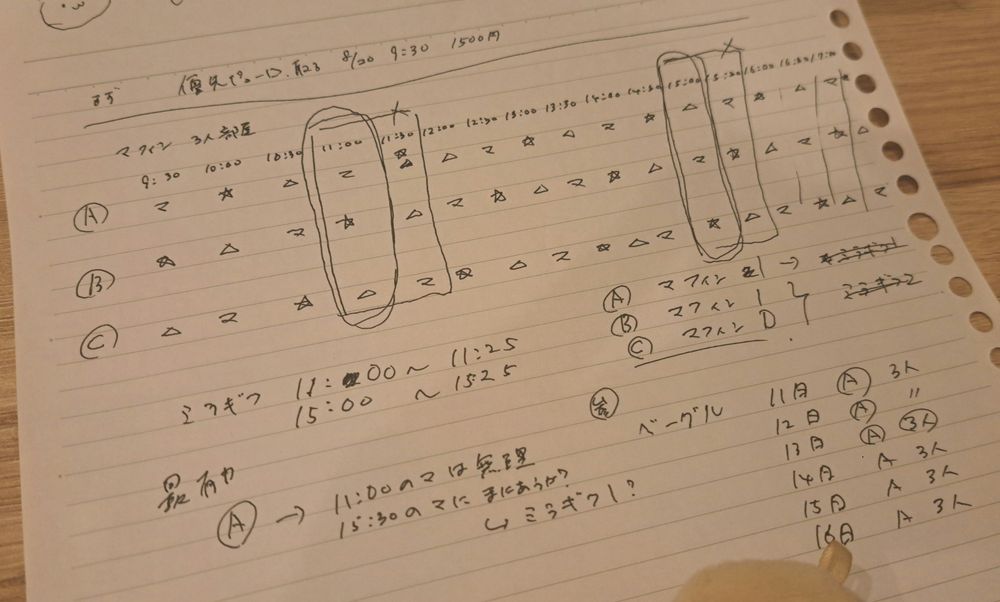 まず 優先パレード 8/20 9:30 1500円
マフィン 3人部屋
9:30 10:00 10:30 11:00 11:30 12:00 12:30 13:00 13:30 14:00 14:30 15:00 15:30 16:00 16:30 17:00
Ⓐ マ ☆ △ マ ☆ △ △ マ ☆ △ マ ☆ △ マ ☆ △ マ ☆
Ⓑ ☆ △ マ ☆ △ マ ☆ △ マ ☆ △ マ ☆ △ マ ☆ △
Ⓒ △ マ ☆ △ マ ☆ △ マ ☆ △ マ ☆ △ マ ☆ △ マ
Ⓐ マフィン 1 →
Ⓑ マフィン 1
Ⓒ マフィン D
ミラギフ 11:00〜11:25
15:00 〜15:25
最有力
Ⓐ → 11:00のマは無理
15:30のマにまにあうか?
↳ ミラギフ1?
ベーグル 11日 Ⓐ 3人
12日 Ⓐ 〃
13日 Ⓐ 3人
14日 A 3人
15日 A 3人
16日 A 3人